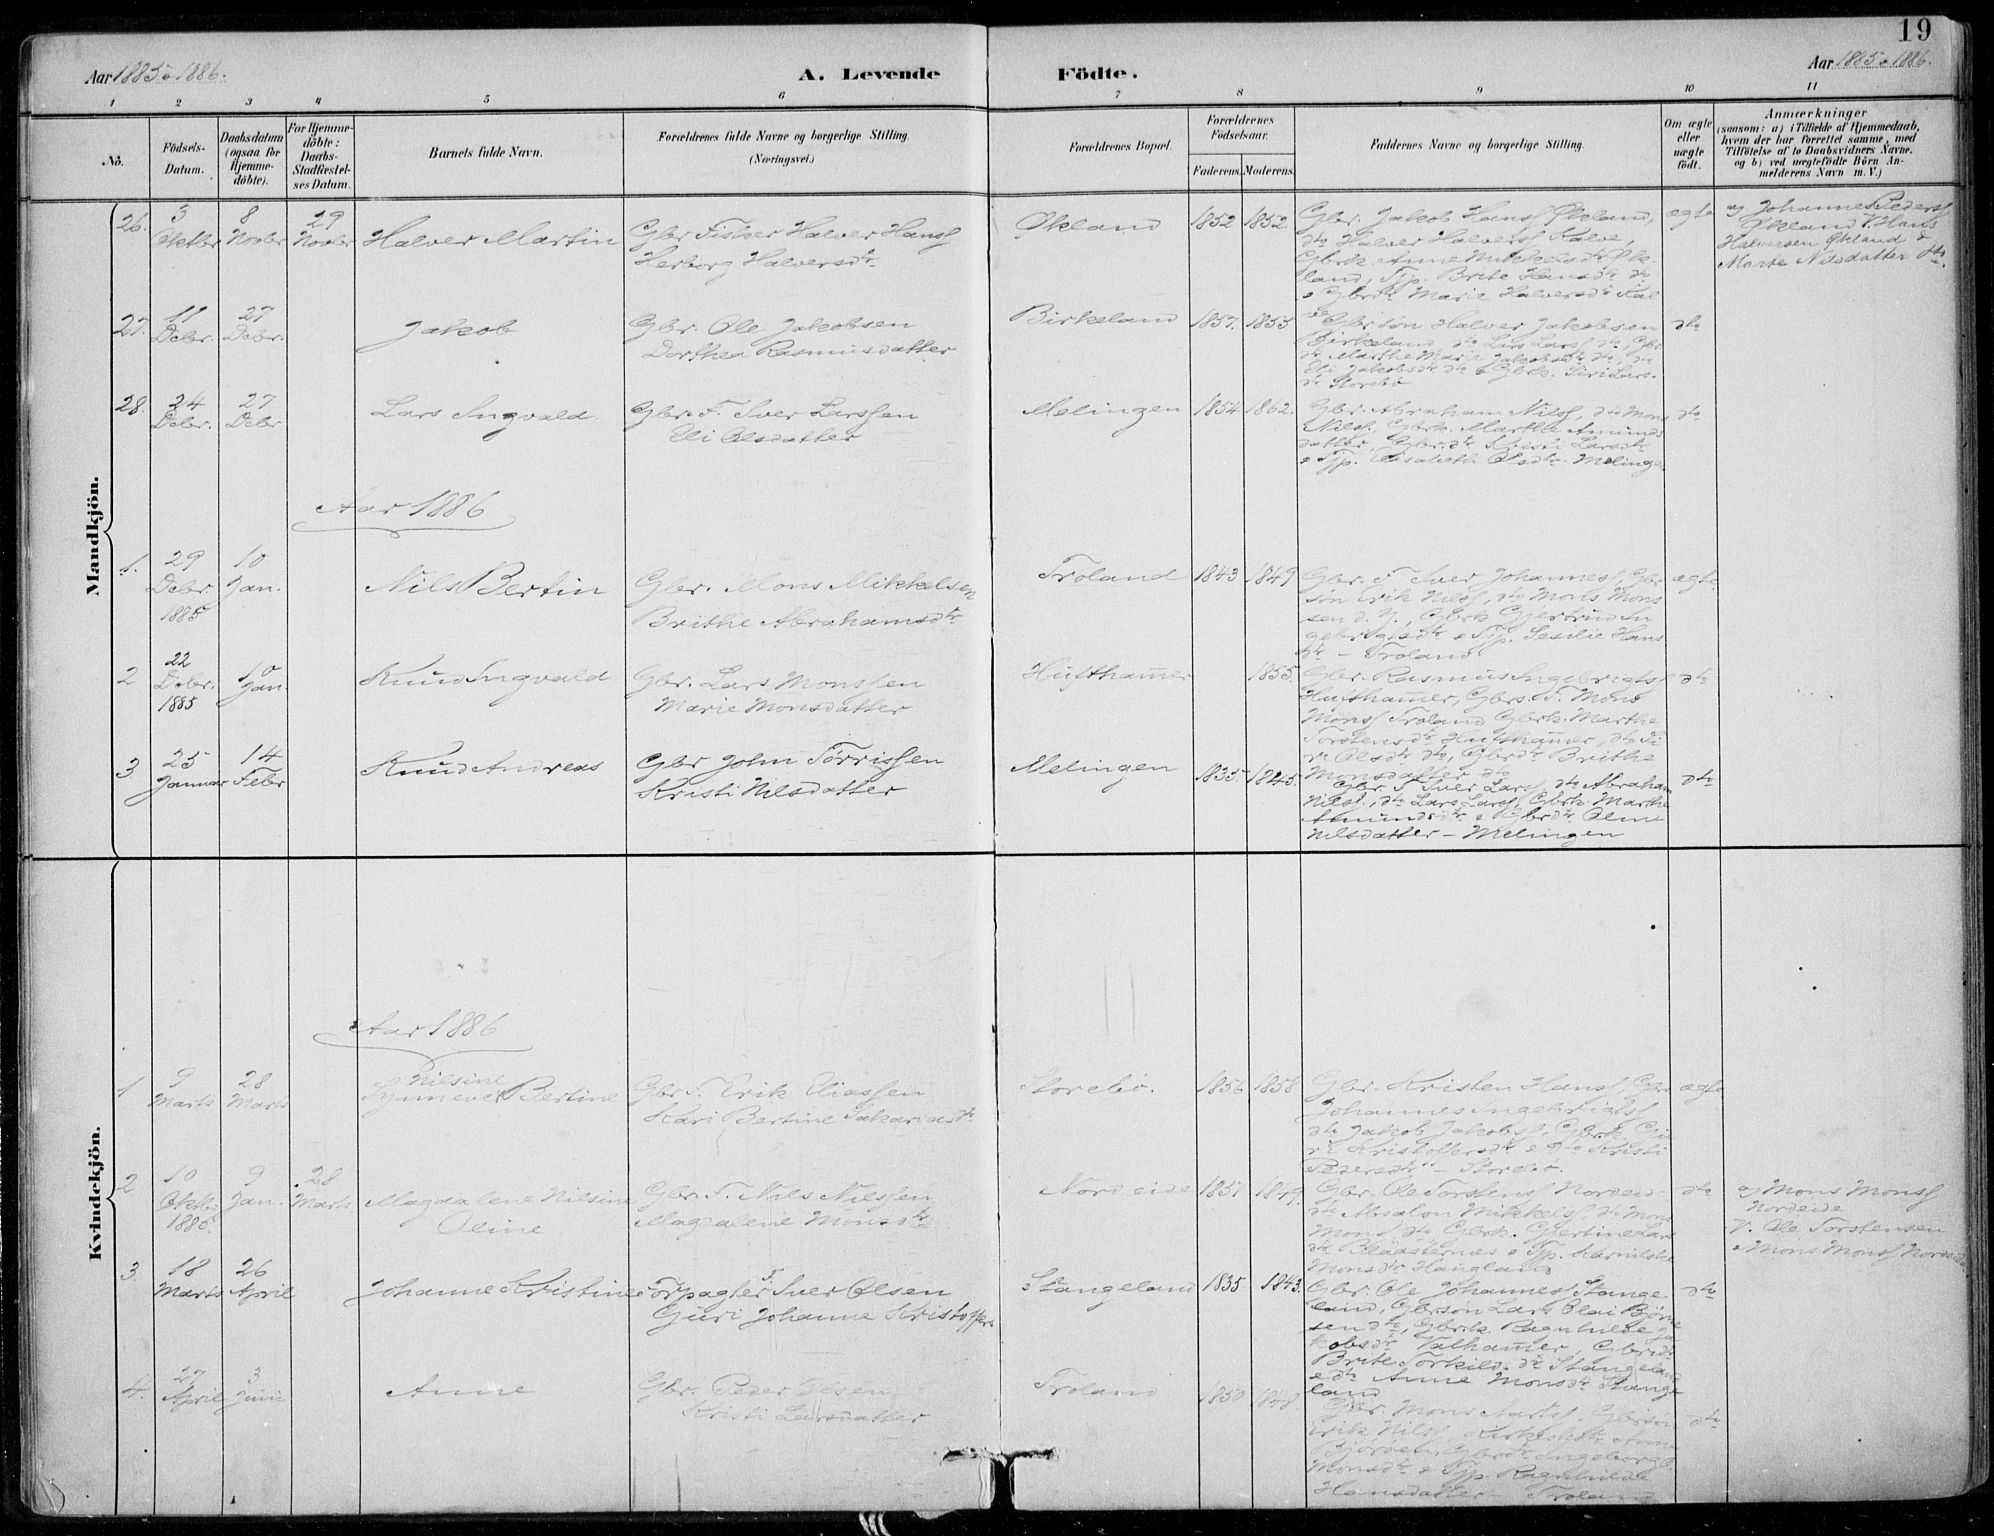 19
Aar 1885 o 1886.
A. Levende Födte.
Aar 1885 o 1886.
1 2 3 4 5 6 7 8 9 10 11
No.
Födsels-
Datum.
Daabsdatum
(ogsaa for
Hjemme-
döbte).
For Hjemme-
döbte:
Daabs-
Stadfæstel-
ses Datum.
Barnets fulde Navn.
Forældrenes fulde Navne og borgerlige Stilling.
(Næringsvei.)
Forældrenes Bopæl.
Forældrenes
Födselsaar.
Faderens. Moderens.
Faddernes Navne og borgerlige Stilling.
Om ægte
eller
uægte
födt.
Anmærkninger
(saasom: a) i Tilfælde af Hjemmedaab,
hvem der har forrettet samme, med
Tilföielse af to Daabsvidners Navne.
og b) ved uægtefödte Börn An-
melderens Navn m. V.)
Mandkjön.
26. 3 Oktbr 8 Novbr 29 Novbr
Halver Martin
Gbr Fisker Halver Hanss
Herborg Halversdtr
Økland 1852 1852
Gbr. Jakob Hanss Økland,
dto Halver Halverss Kalve,
Gbrk. Anne Mikkelsdtr Øk-
land, Tjp. Brite Hansdtr dto
o Gbrdtr Marie Halversdtr Kal
ve
ægte
a) Johannes Peders
Økland V. Hans
Halversen Økland &
Marte Nilsdatter dto.
27. 11 Debr. 27 Debr.
Jakob
Gbr. Ole Jakobsen
Dorthea Rasmusdatter
Birkeland 1857. 1853
Gbrsøn Halver Jakobsen
Birkeland, dto Lars Larss dto, Gbr
dtr Marthe Marie Jakobsdtr dto, dto
Eli Jakobsdtr dto o Gbrk. Siri Lars-
dtr Storebø
dto
28. 24 Debr. 27 Debr
Lars Ingvald.
Gbr. F. Iver Larssen
Eli Olsdatter
Melingen 1854 1862.
Gbr. Abraham Nilss, dto Mons
Nilss, Gbrk. Marthe Amunds
datter, Gbr.dtr Kristi Larsdtr
o Tjp. Elisabeth Olsdtr. Melinge
dto
Aar 1886
1. 29 Debr. 1885 10 Jan.
Nils Bertin
Gbr. Mons Mikkelsen
Brithe Abrahamsdtr
Troland 1843 1849
Gbr. F Iver Johanness, Gbr
søn Erik Nilss, dto Mons Mons
sen d. y., Gbrk Gjertrud In
gebrigtsdtr o Tjp. Sesilie Hans
dtr – Troland
ægte
2 22 Debr. 1885 10 Jan.
Knud Ingvald
Gbr. Lars Monssen
Marie Monsdatter
Hufthamer 1855.
Gbr. Rasmus Ingebrigtss
Hufthamer, Gbrs. F. Mons
Monss Troland Gbrk. Marthe
Torstensdtr Hufthamer, dto Si
ri Olsdtr dto, Gbrdtr Brithe
Monsdatter dto
dto
3 25 Januar 14 Febr
Knud Andreas
Gbr John Torrissen
Kristi Nilsdatter
Melingen 1835 1845.
Gbr. F Iver Larss, dto Abraham
Nilss, dto Lars Larss, Gbrk. Marthe
Amundsdtr o Gbrdtr. Oline
Nilsdatter – Melingen
dto
Kvindekjön.
Aar 1886
1 9 Marts 28 Marts
Nilsine
Synneve Bertine
Gbr. F. Erik Eliassen
Kari Bertine Sakariasdtr
Storebø. 1856 1858
Gbr. Kristen Hanss, Gbr
Johannes Ingebrigtss
dto Jakob Jakobss, Gbrk. Gu
ri Kristoffersdtr o dto Kristi
Pedersdtr – Storebø.
ægte
2 10 Oktbr 1885. 9 Jan. 28 Marts
Magdalene Nilsine
Oline
Gbr. F. Nils Nilssen
Magdalene Monsdtr
Nordeide 1851 1849.
Gbr. Ole Torstenss Nordeide
dto Absalon Mikkelss, dto Mons
Monss dto Gbrk. Gjertine Lars
dtr o Tjp.
Monsdtr Haugland
dto
a) Mons Monss
Nordeide
V. Ole Torstensen
o Mons Monss Nordeide
3. 18 Marts 26 April
Johanne Kristine
Forpagter Iver Olsen
Guri Johanne Kristoffers
Stangeland 1835 1843.
Gbr. Ole Johanness Stange
land, Gbrsøn Lars Olai Bjørn
sen dto, Gbrk. Ragnhilde Ja
kobsdtr Valhamer, Gbrdtr
Brite Torkildsdtr Stangeland
o dto Anne Monsdtr Stange
land
dto
4. 27 April 3 Juni
Anne
Gbr. Peder Olsen
Kristi Larsdatter
Troland 1850 1848
Gbr. Mons Larss, Gbrsøn
Erik Nilss, Anne
Gbrdtr Ingeborg
Monsdtr o Tjp. Ragnhilde
Hansdatter – Troland
dto